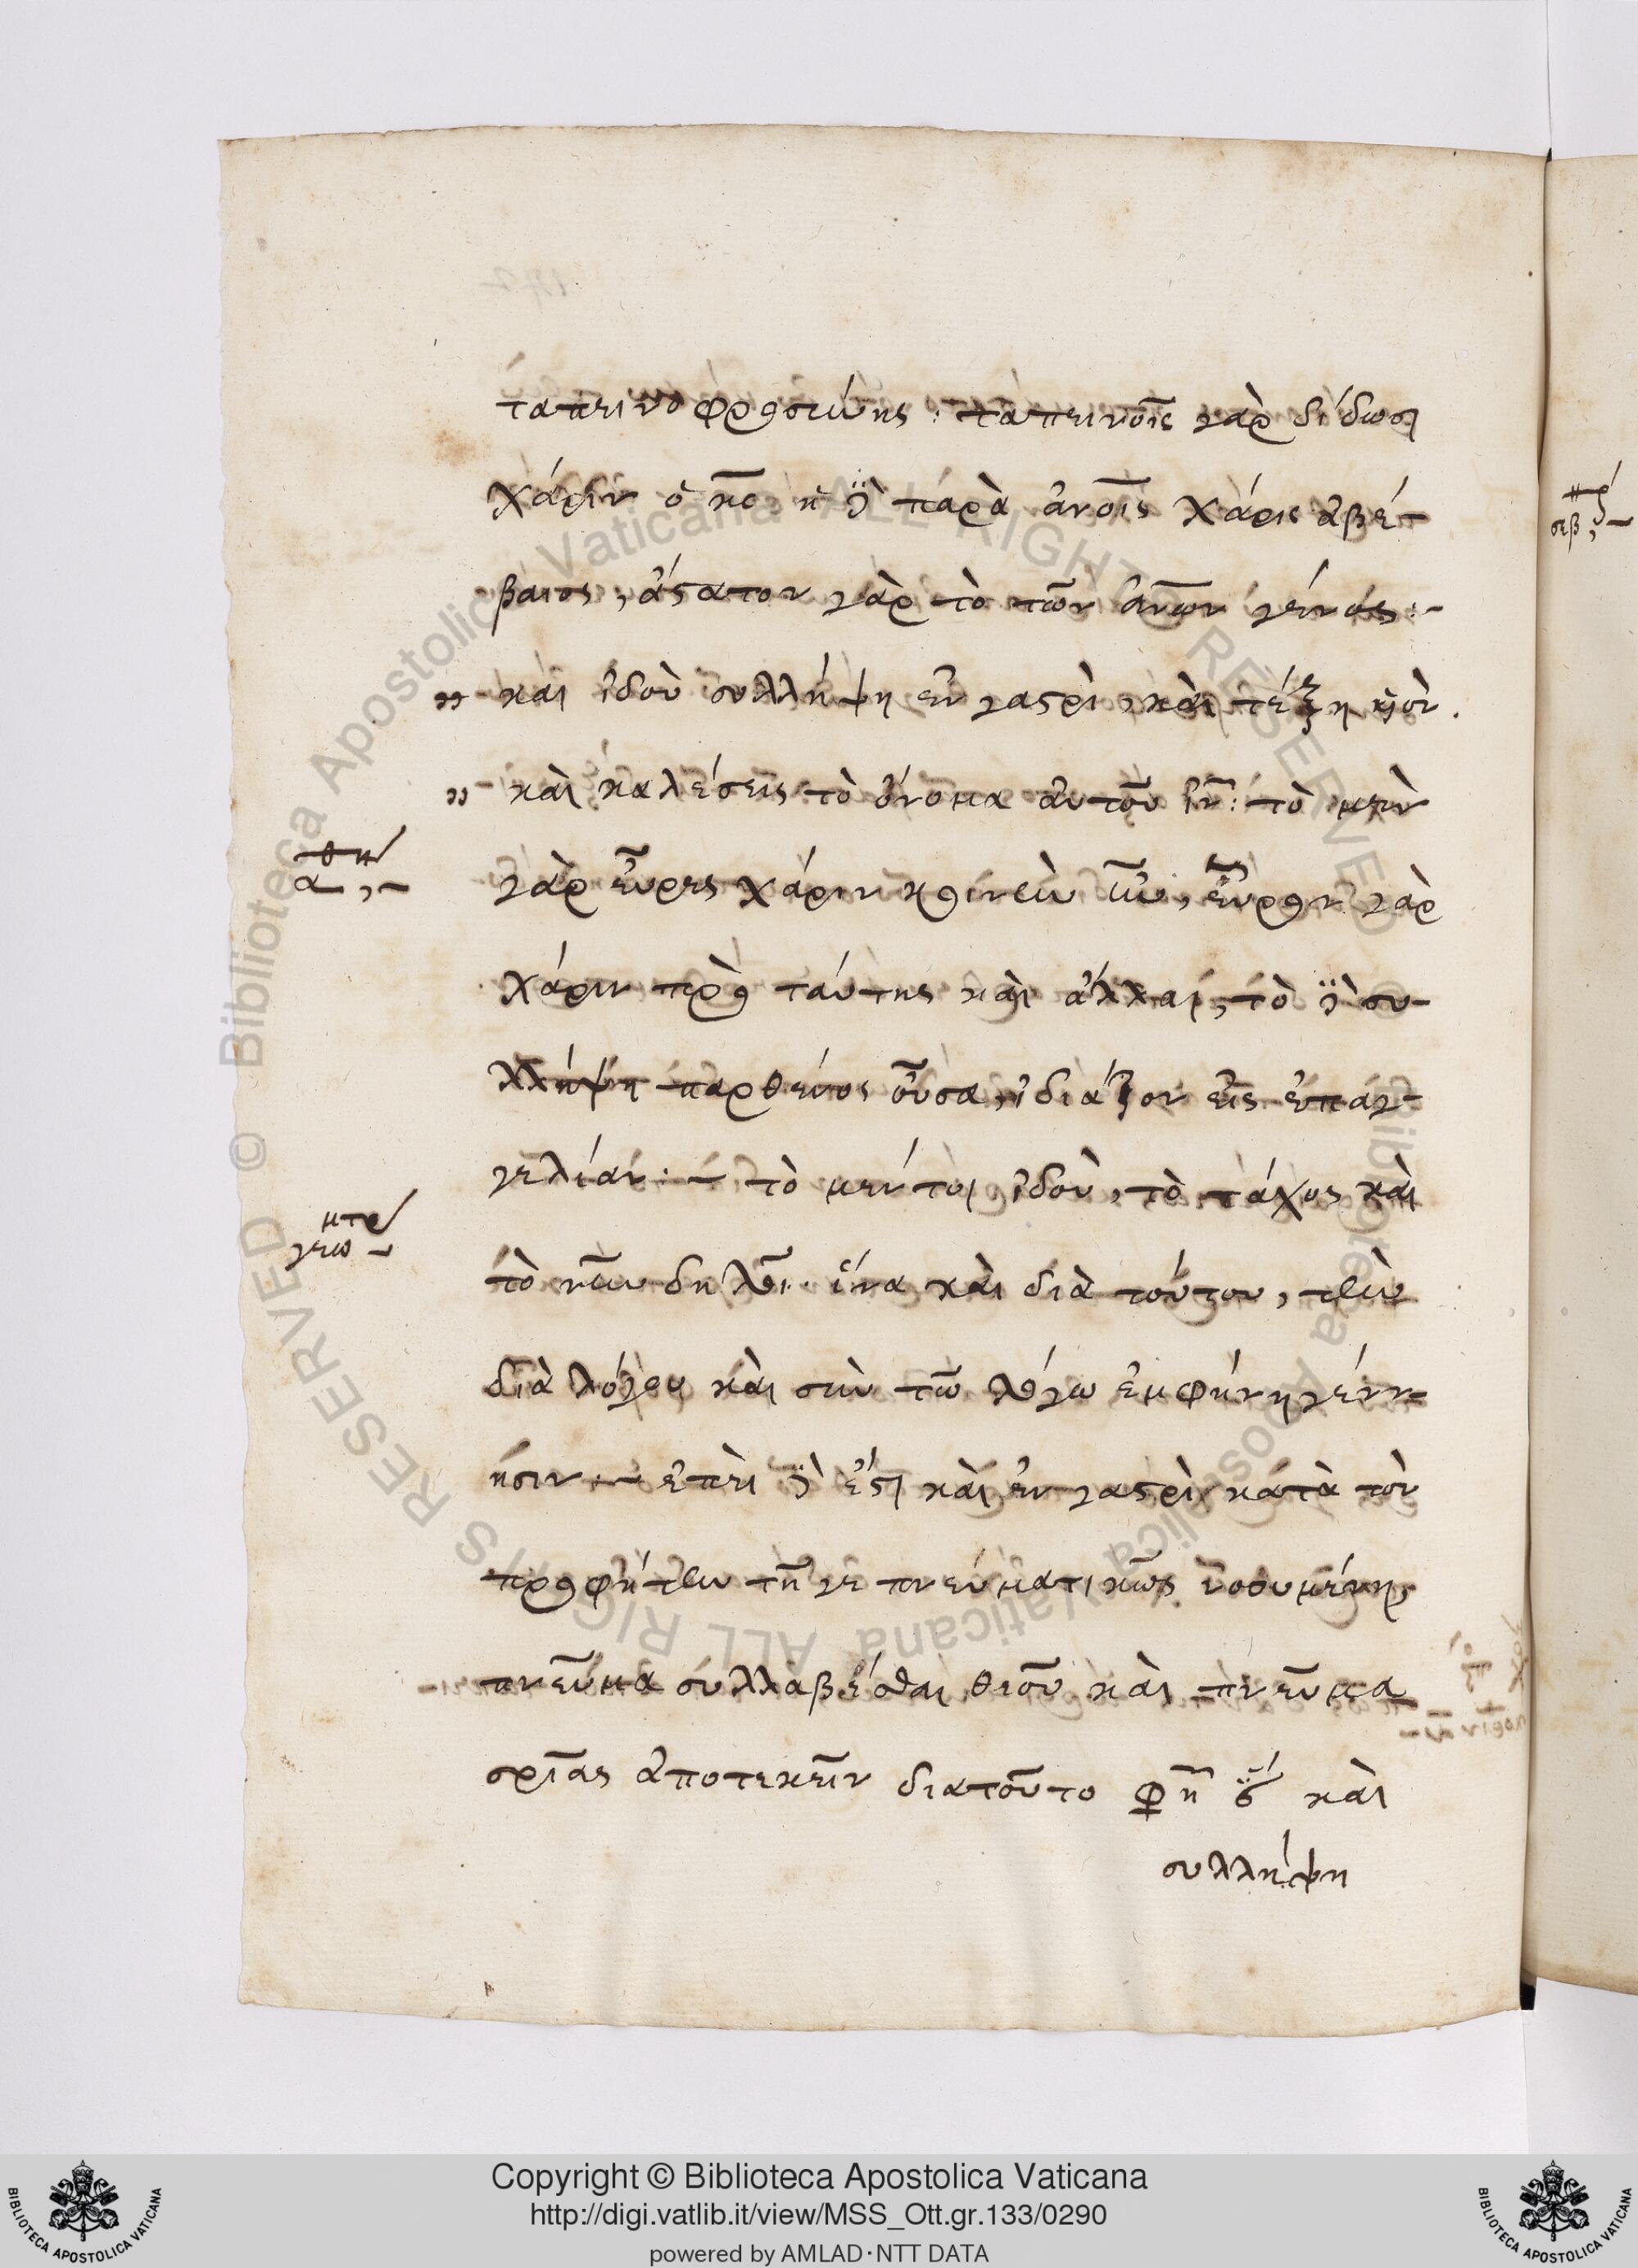 ταπεινοφροσύνης : ταπεινοῖς γὰρ δίδωσι
χάριν ὁ κς̄ ἡ δὲ παρὰ ἀνοις χάρις ἀβέ-
βαιος , ἄστατον γὰρ τὸ τῶν ἀνων γένος :-
" και ἰδοὺ συλλήψη ἐν γαστρὶ , καὶ τέξη υἱὸν .
" καὶ καλέσεις τὸ ὄνομα αὐτοῦ ιν : τὸ μὲν
α ,-
γὰρ εὗρες χάριν κοινὸν ἦν , εὗρον γὰρ
χάριν πρὸ ταύτης καὶ ἄλλαι , τὸ δὲ συ-
λλήψη παρθένος οὖσα , ἰδιάζον εἰς ἐπαγ-
γελίαν :- τὸ μέντοι ἰδοὺ , τὸ τάχος καὶ
μτρ
γεω -
τὸ νῦν δηλοῖ · ἵνα καὶ διὰ τούτου , τὴν
διὰ λόγου καὶ σὺν τῶ λόγω ἐμφήνη γένν-
ησιν :- ἐπεὶ δὲ ἔστι καὶ ἐν γαστρὶ κατὰ τὸν
προφήτην τῆ γε πνευματικῶς νοουμένη ,
πνεῦμα συλλαβέσθαι θεοῦ καὶ πνεῦμα
σριας ἀποτεκεῖν διατοῦτο καὶ
συλλήψη
σεβ ,-
Copyright © Biblioteca Apostolica Vaticana
http://digi.vatlib.it/view/MSS_Ott.gr.133/0290
powered by AMLAD·NTT DATA
BIBLIOTECA APOSTOLICA VATICANA
BIBLIOTECA APOSTOLICA VATICANA
© Biblioteca Apostolica Vaticana ALL RIGHTS RESERVED
© Biblioteca Apostolica Vaticana ALL RIGHTS RESERVED